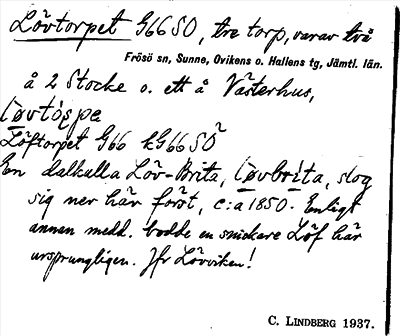 Lövtorpet G66 SO, tre torp, varav två
Frösö sn, Sunne, Ovikens o. Hallens tg, Jämtl. län.
å 2 Stocke o. ett å Västerhus,
Löftorpet G66 kG66 SÖ
En dalkulla Löv-Brita, løvbrita, slog
sig ner här först, c:a 1850. Enligt
annan medd. bodde en snickare Löf här
ursprungligen. Jfr Lövviken!
C. LINDBERG 1937.